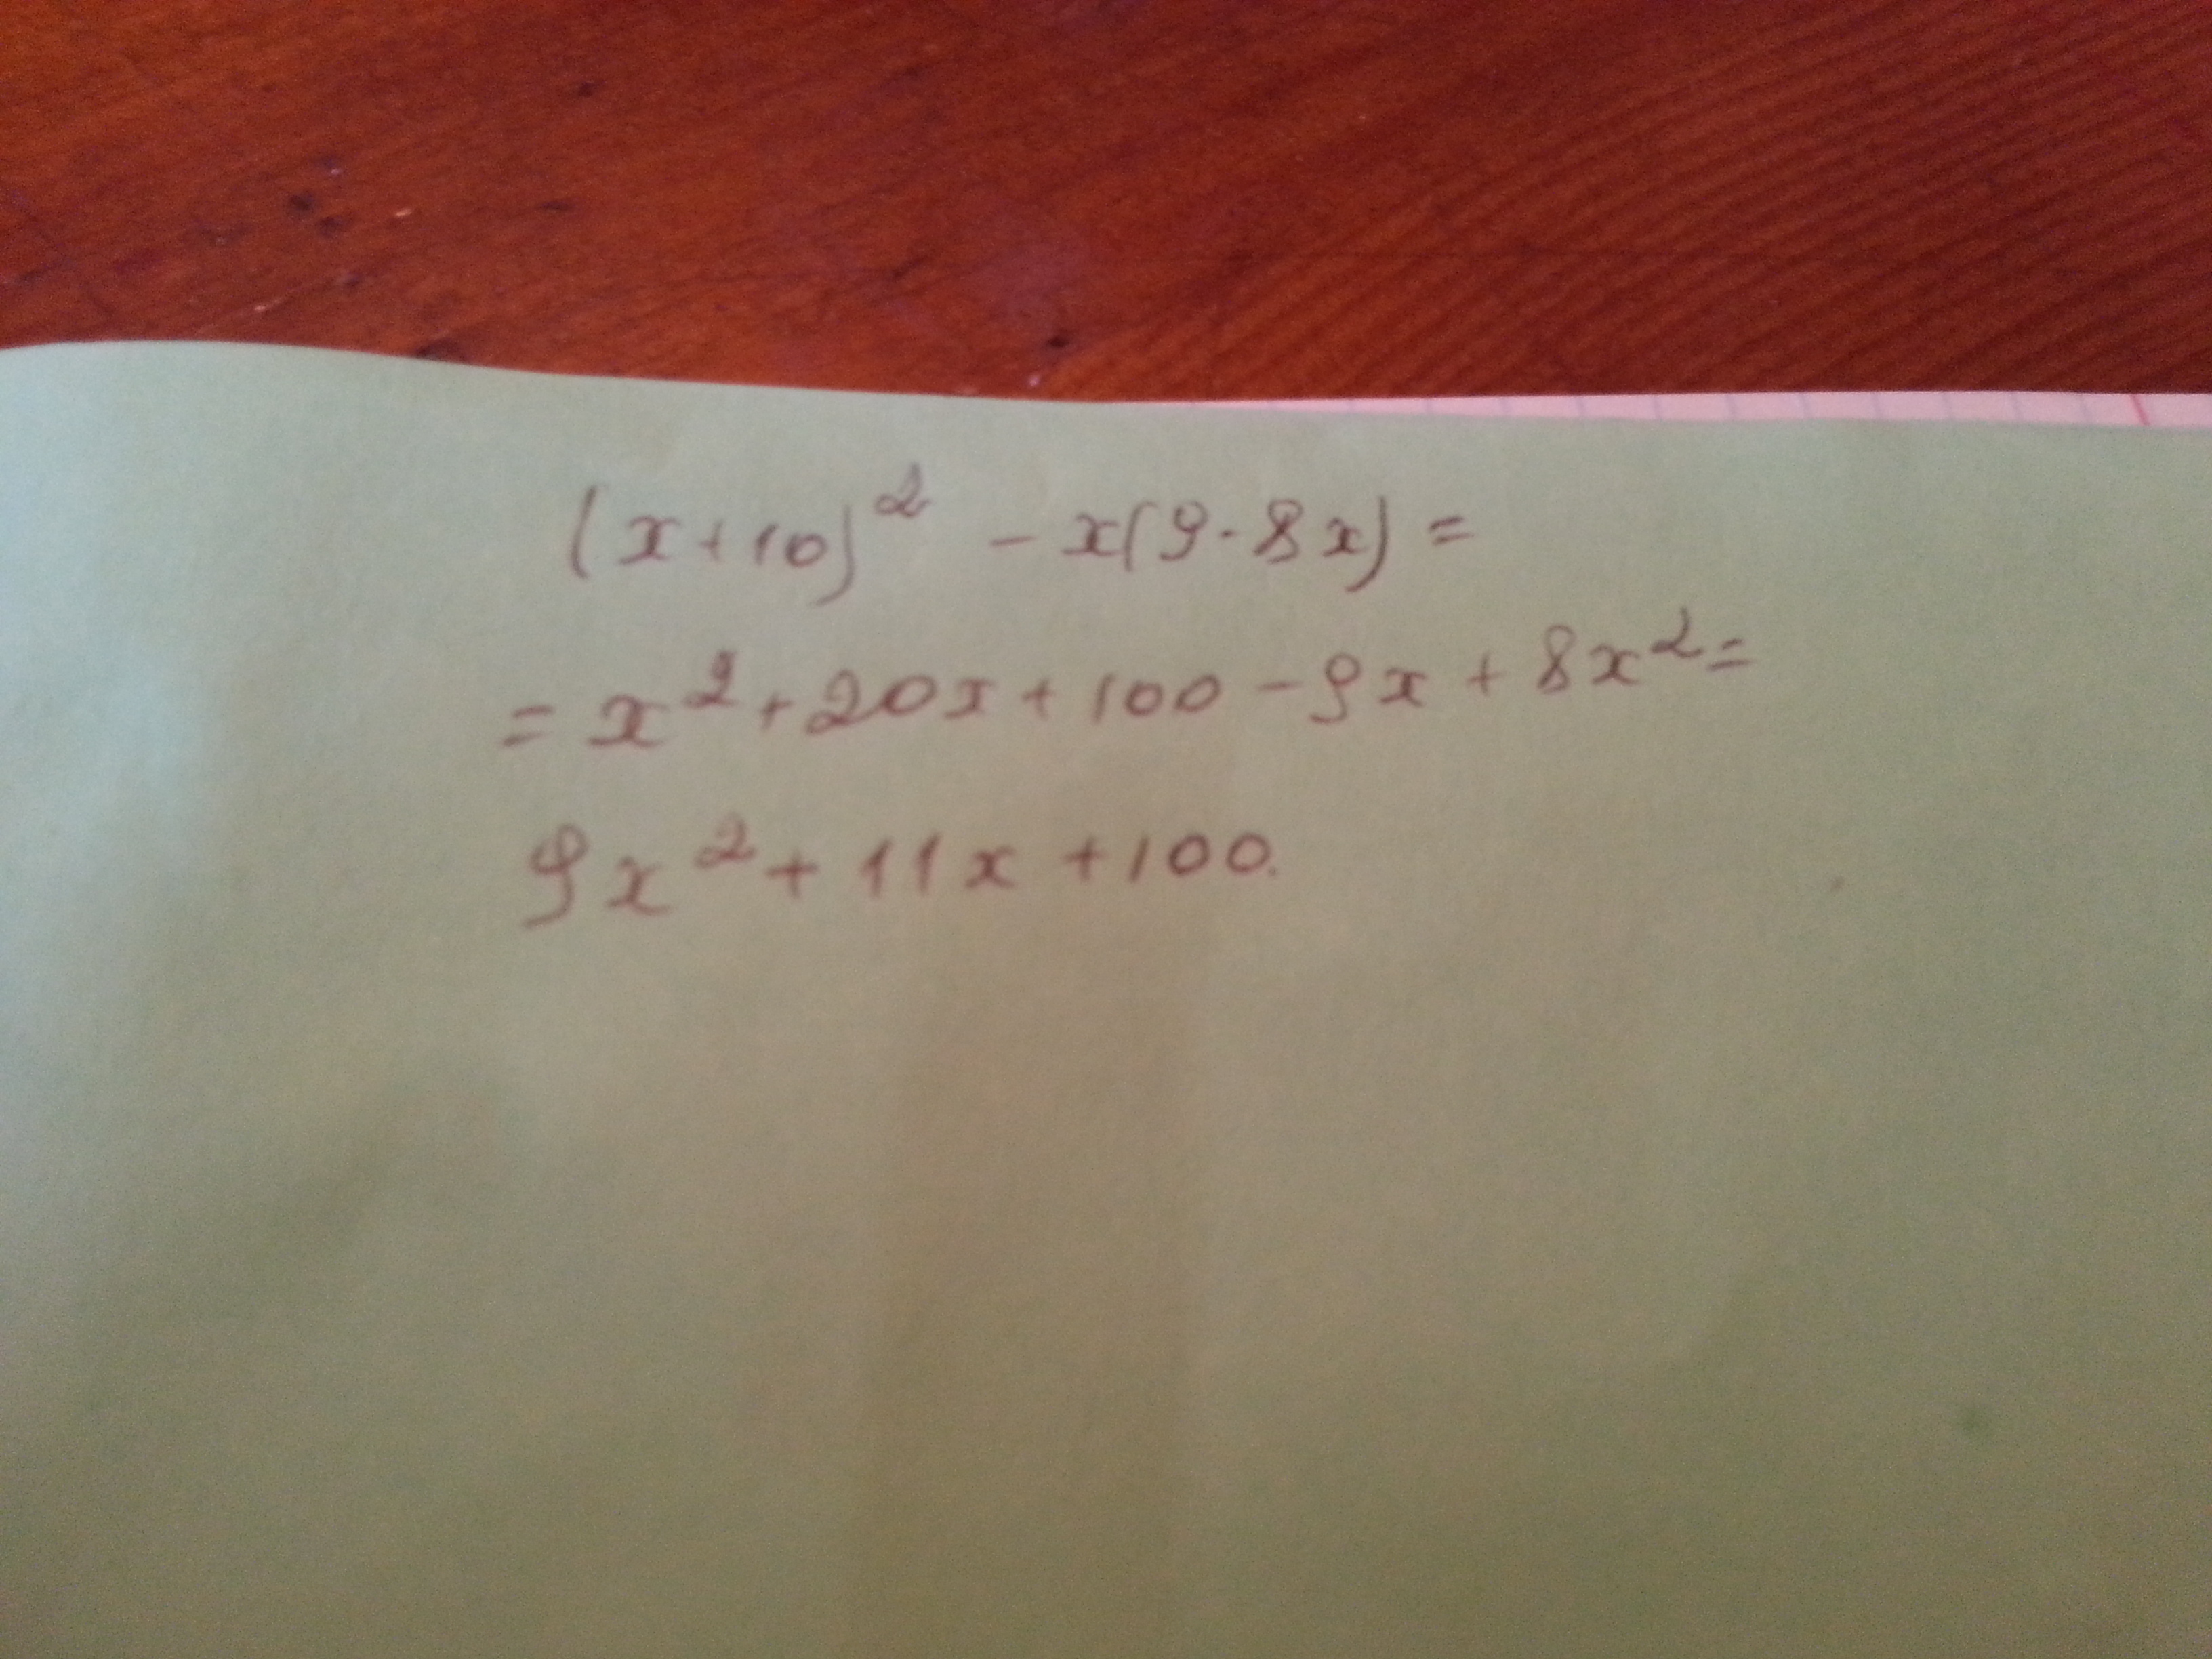 (x+10)² - x(9-8x) =
= x² + 20x + 100 - 9x + 8x² =
9x² + 11x + 100.